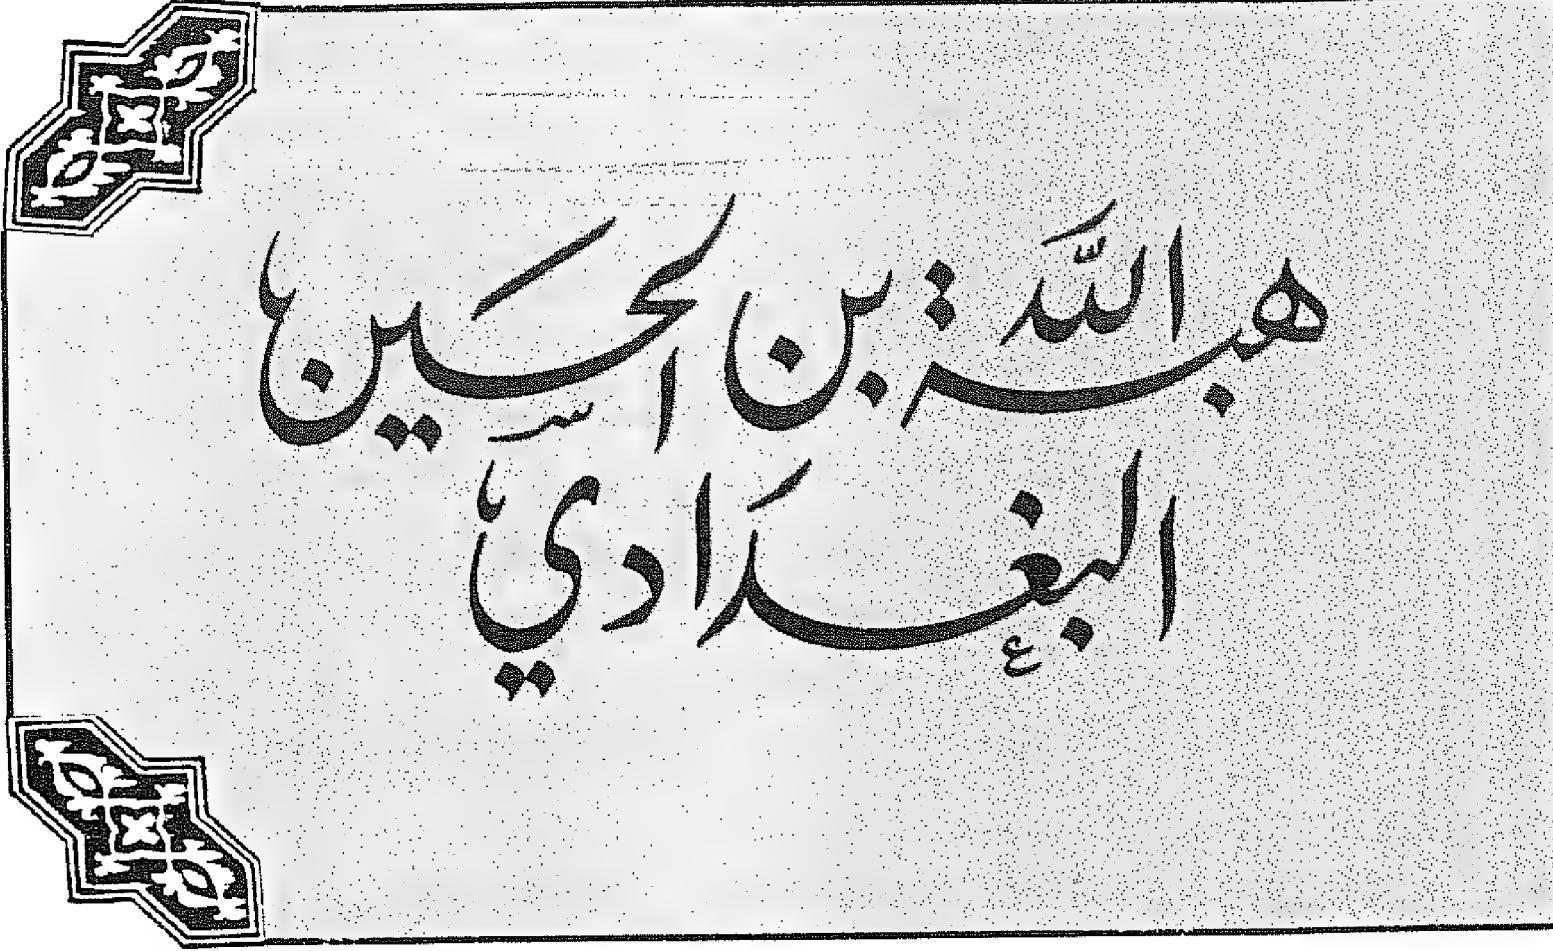 هبة الله بن الحسين
البغدادي